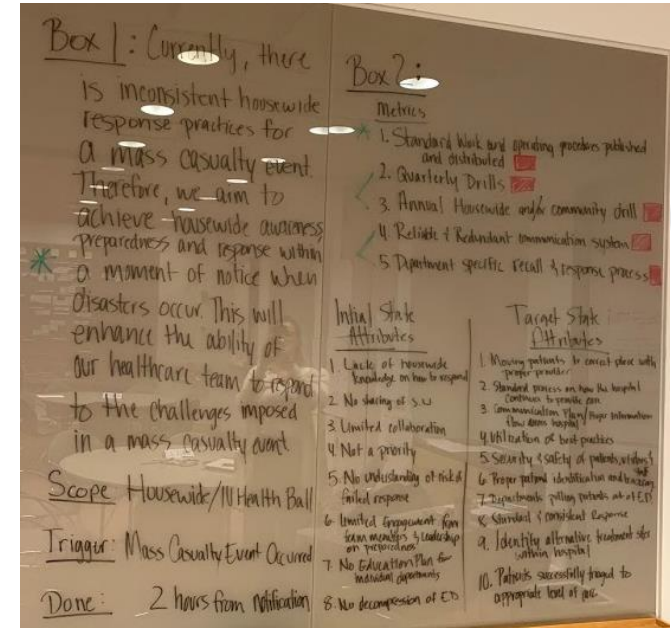 Box 1: Currently, there
is inconsistent housewide
response practices for
a mass casualty event.
Therefore, we aim to
achieve housewide awareness,
preparedness and response within
a moment of notice when
disasters occur. This will
enhance the ability of
our healthcare team to respond
to the challenges imposed
in a mass casualty event
Scope Housewide/IU Health Ball
Trigger: Mass Casualty Event Occurred
Done: 2 hours from notification
Box 2:
Metrics
1. Standard Work and operating procedures published
and distributed
2. Quarterly Drills
3. Annual Housewide and/or community drill
4. Reliable & Redundant communication system
5. Department specific recall & response process
Initial State
Attributes
1. Lack of housewide
knowledge on how to respond
2. No sharing of S.W
3. Limited collaboration
4. Not a priority
5. No understanding of risk of
failed response
6. Limited Engagement from
team members & Leadership
on preparedness
7. No Education Plan for
individual departments
8. No decompression of ED
Target State
Attributes
1. Moving patients to correct place with
proper provider
2. Standard process on how the hospital
continues to provide care
3. Communication Plan/ Proper Information
flow across hospital
4. Utilization of best practices
5. Security & safety of patients, visitors &
staff
6. Proper patient identification and tracking
7. Departments pulling patients out of ED
8. Standard & consistent Response
9. Identify alternative treatment sites
within hospital
10. Patients successfully triaged to
appropriate level of care